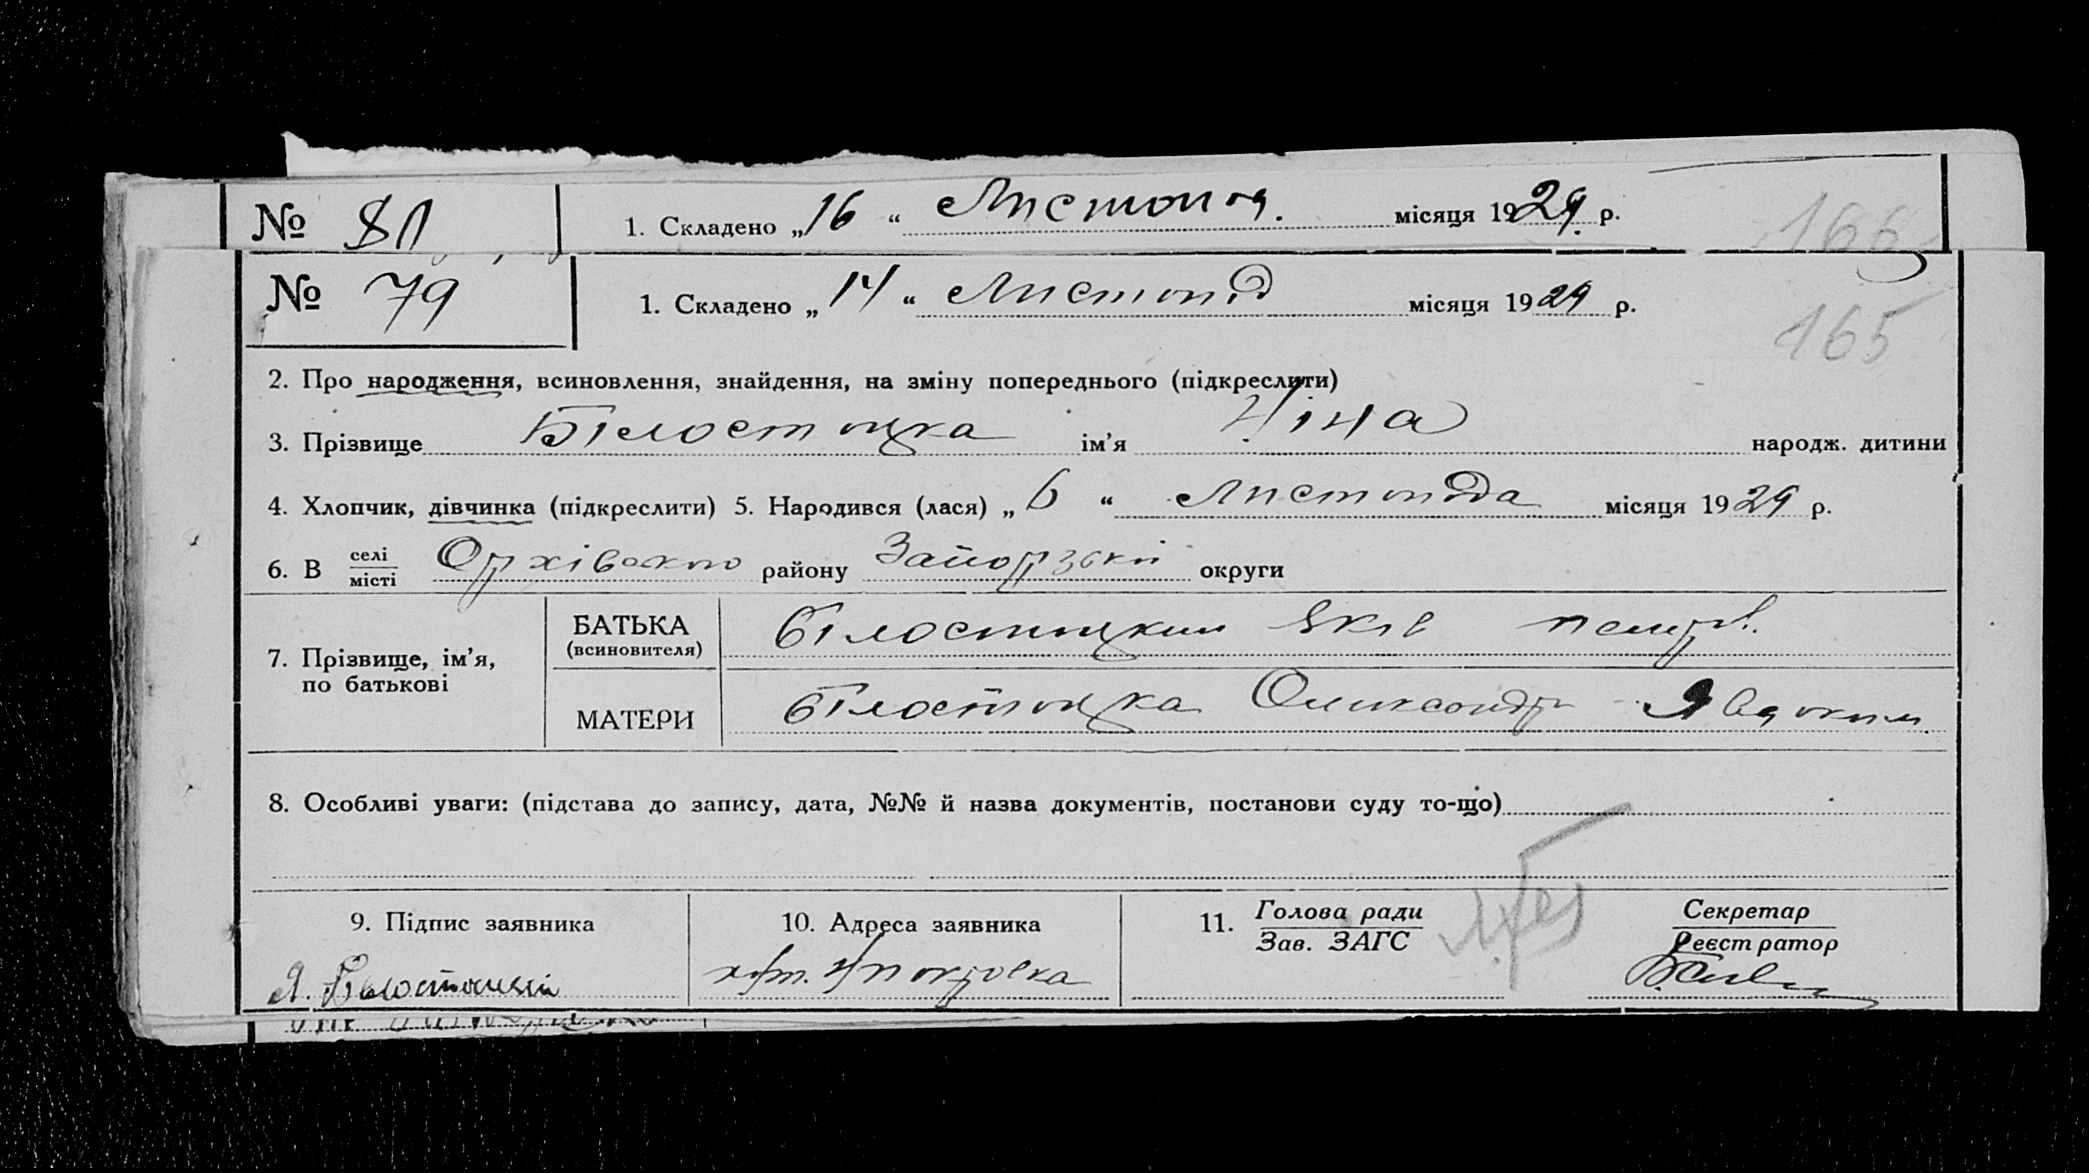 № 80 1. Складено „16“ Листопад. місяця 1929. р.
166
№ 79 1. Складено „14“ Листопад місяця 1929 р.
165
2. Про народження, всиновлення, знайдення, на зміну попереднього (підкреслити)
3. Прізвище Білостоцка ім’я Ніна народж. дитини
4. Хлопчик, дівчинка (підкреслити) 5. Народився (лася) „6“ Листопада місяця 1929 р.
6. В селі/місті Оріхівського району Запорзькій округи
7. Прізвище, ім’я, по батькові
БАТЬКА (всиновителя) Білостоцкий Яків Петр.
МАТЕРИ Білостоцка Олександр Явдоким.
8. Особливі уваги: (підстава до запису, дата, №№ й назва документів, постанови суду то-що)
9. Підпис заявника 10. Адреса заявника 11. Голова ради/Зав. ЗАГС Секретар/Реєстратор
Я. Білостоцкий Покровка